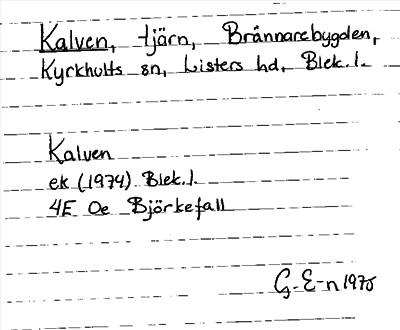 Kalven, tjärn, Brännarebygden,
Kyrkhults sn, Listers hd, Blek. l.
Kalven
ek (1974) Blek. l.
4E Oe Björkefall
G. E-n 1975